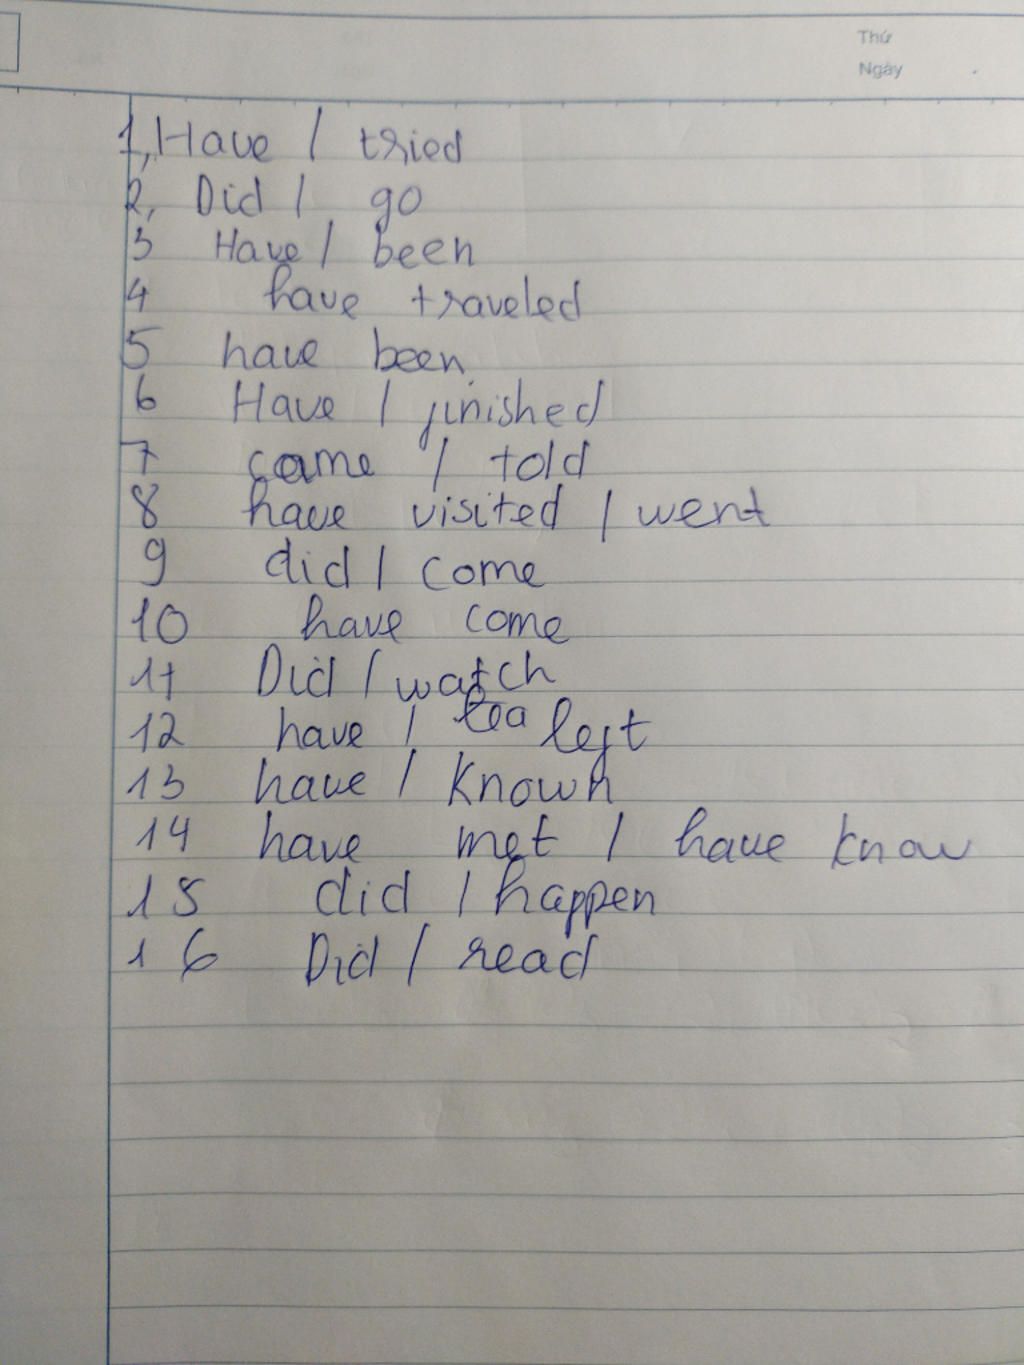 Thứ
Ngày
1, Have / tried
2, Did / go
3 Have / been
4 have traveled
5 have been
6 Have / finished
7 came / told
8 have visited / went
9 did / come
10 have come
11 Did / watch
12 have / left
13 have / known
14 have met / have know
15 did / happen
16 Did / read